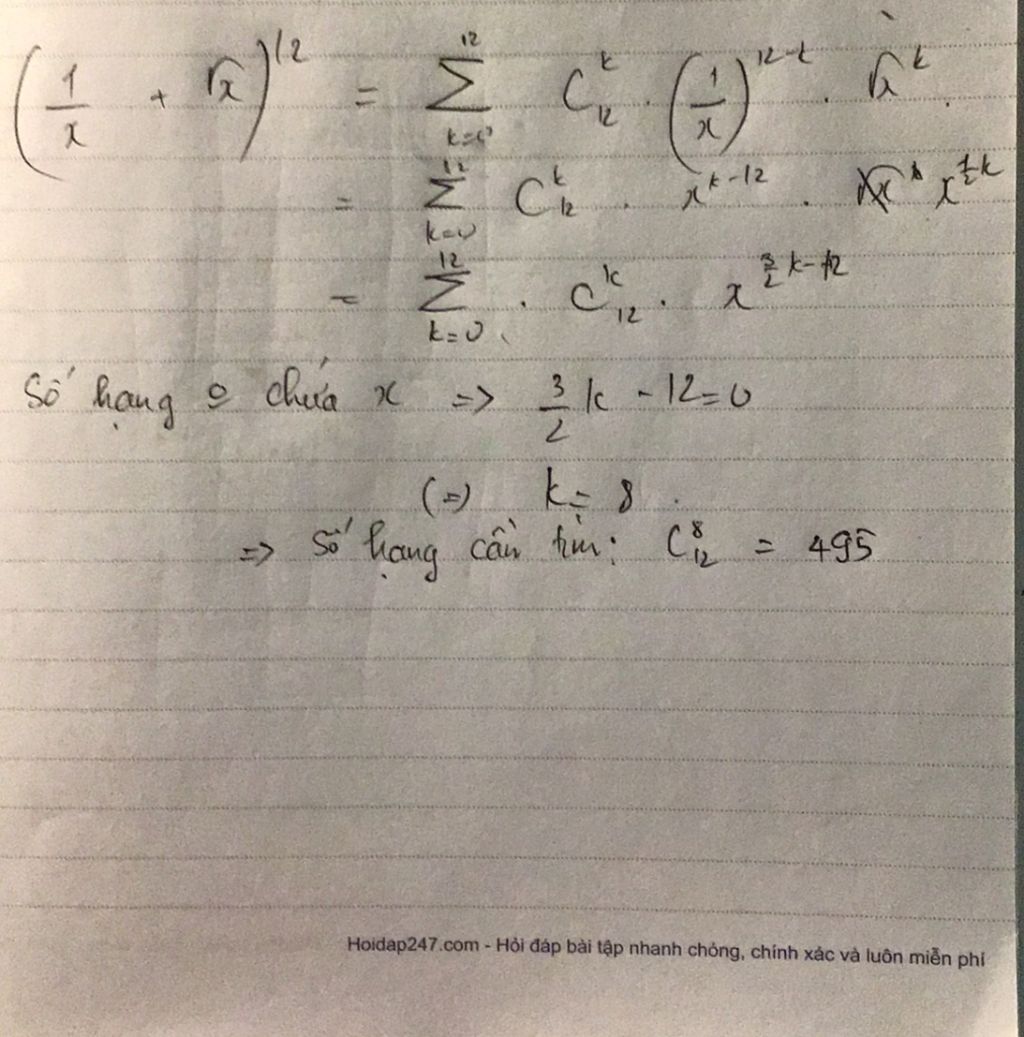 (1/x + √x)^12 = ∑_{k=0}^{12} C_{12}^{k} . (1/x)^{12-k} . √x^k .
= ∑_{k=0}^{12} C_{12}^{k} . x^{k-12} . x^{1/2 k}
= ∑_{k=0}^{12} . C_{12}^{k} . x^{3/2 k-12}
Số hạng o chứa x => 3/2 k - 12 = 0
(=) k = 8 .
=> Số hạng cần tìm: C_{12}^{8} = 495
Hoidap247.com - Hỏi đáp bài tập nhanh chóng, chính xác và luôn miễn phí